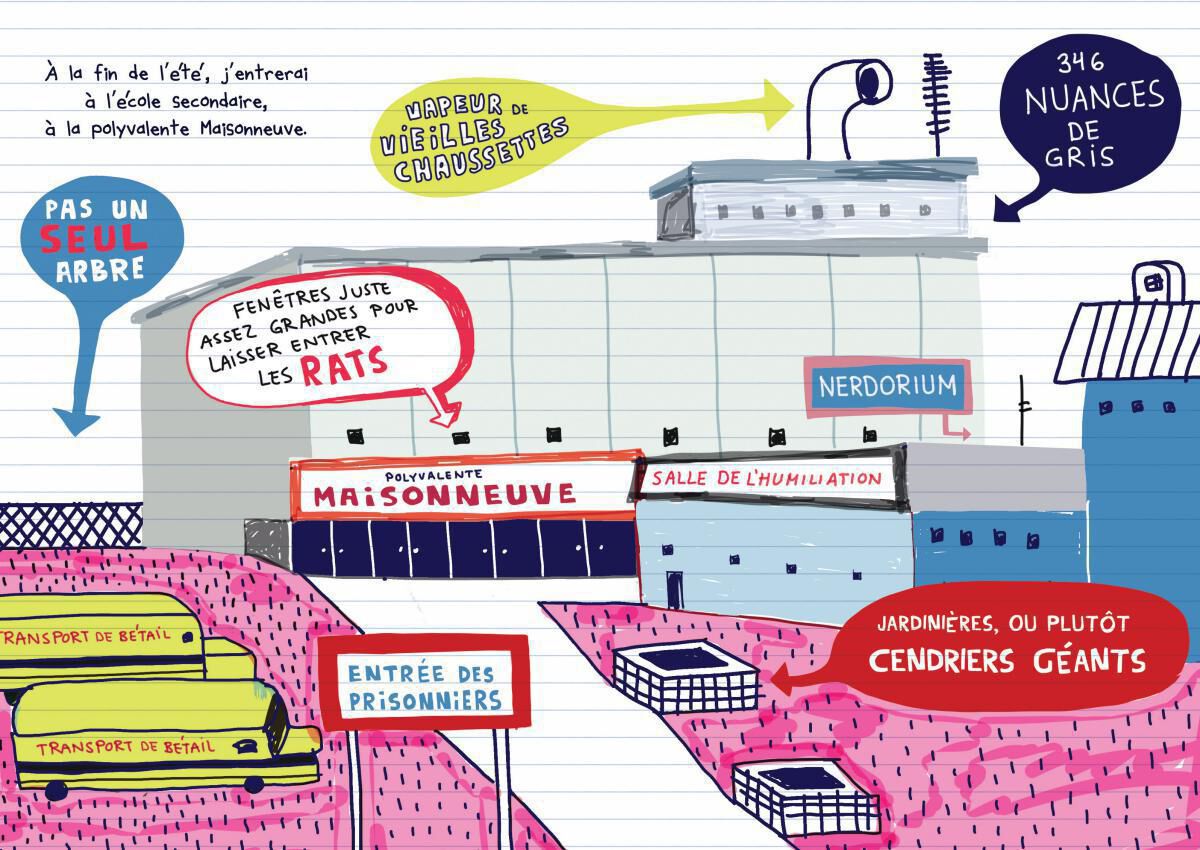 À la fin de l'été, j'entrerai
à l'école secondaire,
à la polyvalente Maisonneuve.
VAPEUR DE
VIEILLES
CHAUSSETTES
346
NUANCES
DE
GRIS
PAS UN
SEUL
ARBRE
FENÊTRES JUSTE
ASSEZ GRANDES POUR
LAISSER ENTRER
LES RATS
NERDORIUM
POLYVALENTE
MAISONNEUVE
SALLE DE L'HUMILIATION
JARDINIÈRES, OU PLUTÔT
CENDRIERS GÉANTS
TRANSPORT DE BÉTAIL
ENTRÉE DES
PRISONNIERS
TRANSPORT DE BÉTAIL